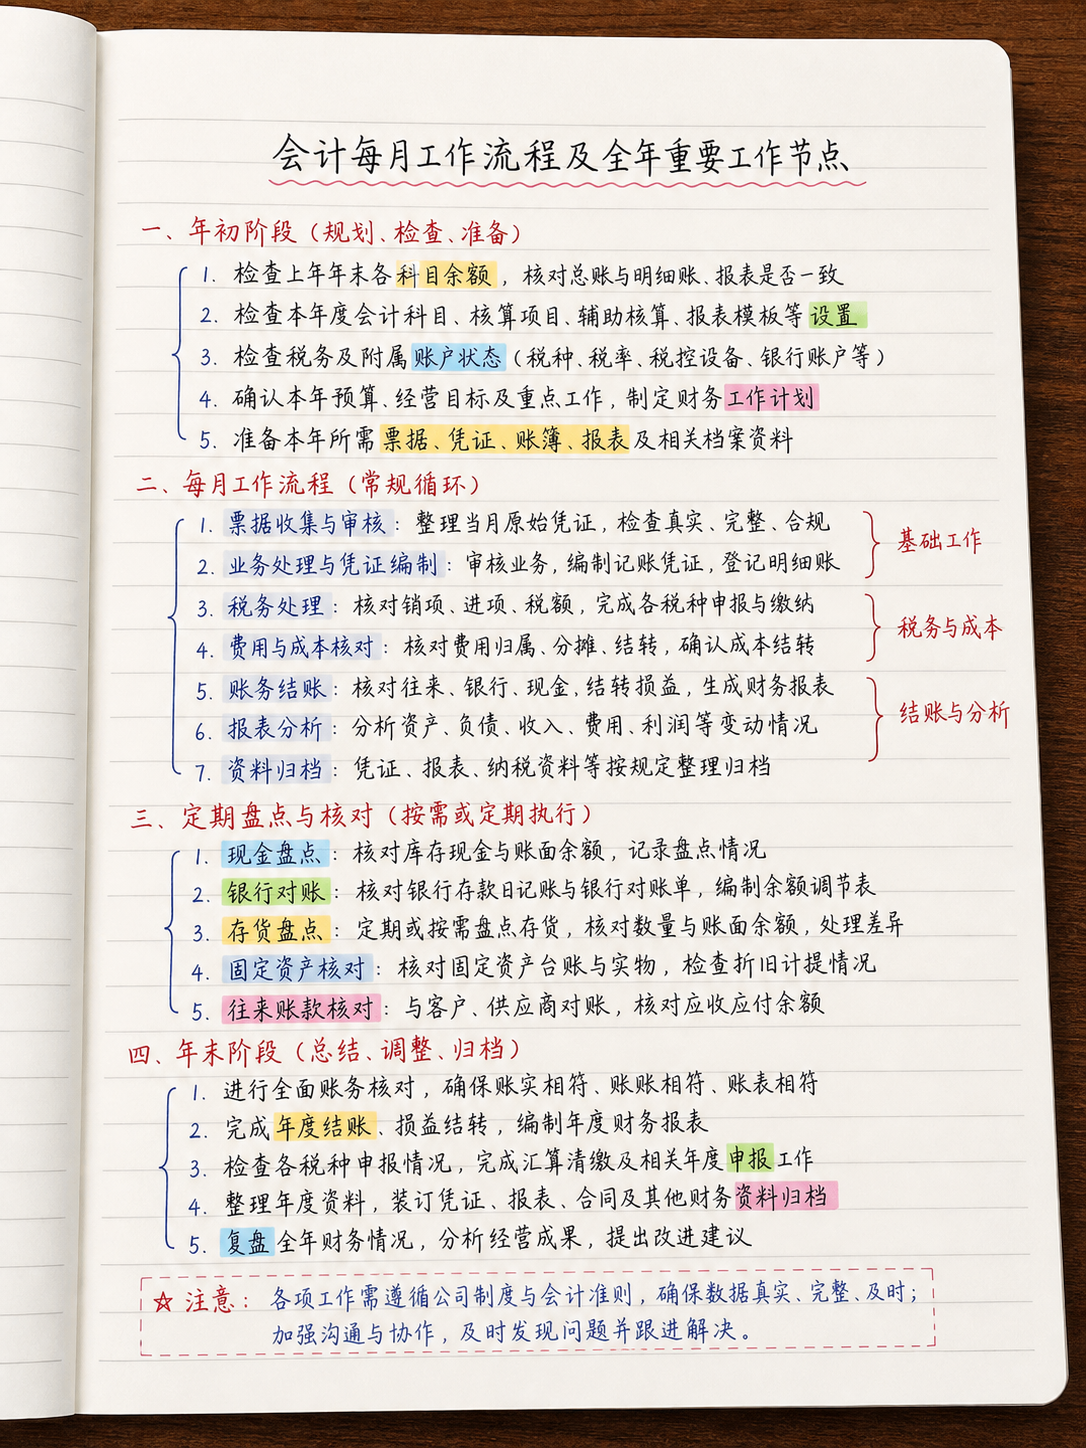 会计每月工作流程及全年重要工作节点
一、年初阶段（规划、检查、准备）
1. 检查上年年末各科目余额，核对总账与明细账、报表是否一致
2. 检查本年度会计科目、核算项目、辅助核算、报表模板等设置
3. 检查税务及附属账户状态（税种、税率、税控设备、银行账户等）
4. 确认本年预算、经营目标及重点工作，制定财务工作计划
5. 准备本年所需票据、凭证、账簿、报表及相关档案资料
二、每月工作流程（常规循环）
1. 票据收集与审核：整理当月原始凭证，检查真实、完整、合规
2. 业务处理与凭证编制：审核业务，编制记账凭证，登记明细账
基础工作
3. 税务处理：核对销项、进项、税额，完成各税种申报与缴纳
4. 费用与成本核对：核对费用归属、分摊、结转，确认成本结转
税务与成本
5. 账务结账：核对往来、银行、现金，结转损益，生成财务报表
6. 报表分析：分析资产、负债、收入、费用、利润等变动情况
7. 资料归档：凭证、报表、纳税资料等按规定整理归档
结账与分析
三、定期盘点与核对（按需或定期执行）
1. 现金盘点：核对库存现金与账面余额，记录盘点情况
2. 银行对账：核对银行存款日记账与银行对账单，编制余额调节表
3. 存货盘点：定期或按需盘点存货，核对数量与账面余额，处理差异
4. 固定资产核对：核对固定资产台账与实物，检查折旧计提情况
5. 往来账款核对：与客户、供应商对账，核对应收应付余额
四、年末阶段（总结、调整、归档）
1. 进行全面账务核对，确保账实相符、账账相符、账表相符
2. 完成年度结账、损益结转，编制年度财务报表
3. 检查各税种申报情况，完成汇算清缴及相关年度申报工作
4. 整理年度资料，装订凭证、报表、合同及其他财务资料归档
5. 复盘全年财务情况，分析经营成果，提出改进建议
☆ 注意：各项工作需遵循公司制度与会计准则，确保数据真实、完整、及时；
加强沟通与协作，及时发现问题并跟进解决。